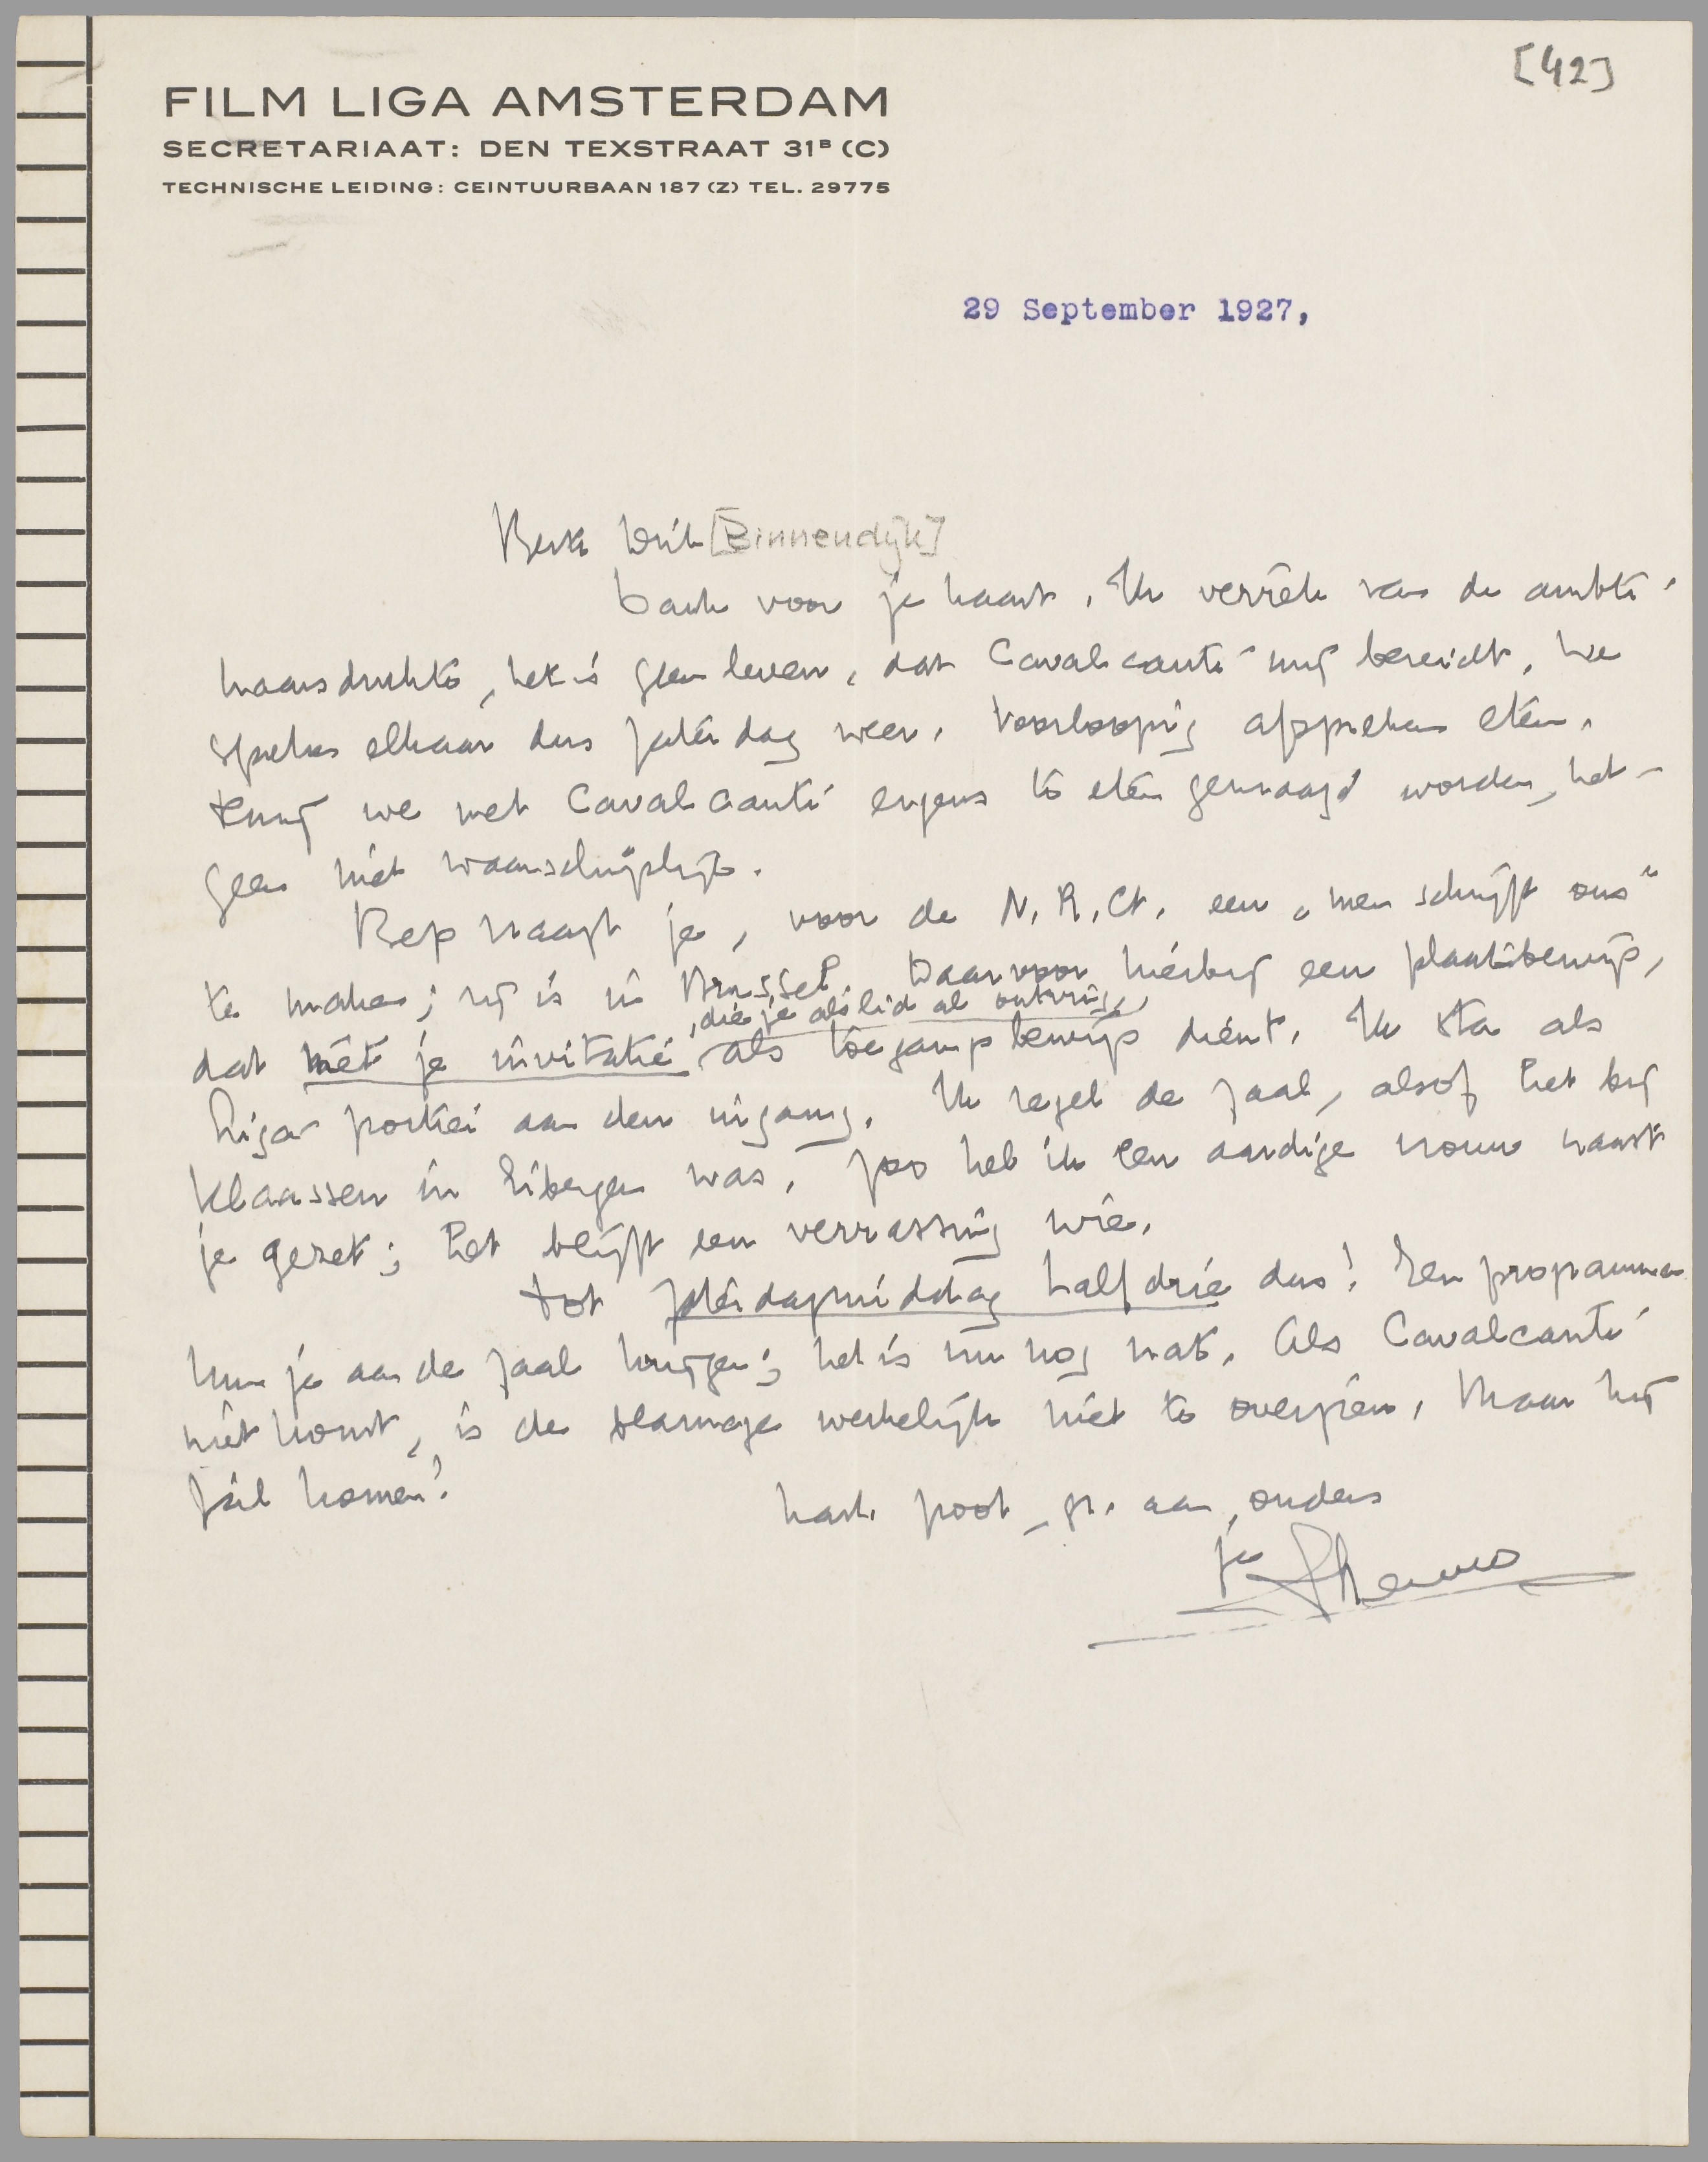 [42]
FILM LIGA AMSTERDAM
SECRETARIAAT: DEN TEXSTRAAT 31ᴮ (C)
TECHNISCHE LEIDING: CEINTUURBAAN 187 (Z) TEL. 29775
29 September 1927,
Beste Dick [Binnendijk]
Dank voor je kaart. Ik verrek van de ambte-
naarsdrukte, het is geen leven, dat Cavalcanti mij bereidt. We
spreken elkaar dus Zaterdag weer. Voorloopig afspreken eten,
tenzij we met Cavalcanti ergens te eten gevraagd worden, het-
geen niet waarschijnlijk.
Bep vraagt je, voor de N.R.Ct. een „men schrijft ons"
te maken; zij is in Brussel. Daarvoor hierbij een plaatsbewijs,
, die je als lid al ontving,
dat mèt je invitatie als toegangsbewijs dient. Ik sta als
Liga-portier aan den ingang. Ik regel de zaal, alsof het bij
Klaassen in Eibergen was. Zoo heb ik een aardige vrouw naast
je gezet; het blijft een verrassing wie.
Tot Zaterdagmiddag half drie dus! Een programma
kun je aan de zaal krijgen; het is nu nog nat. Als Cavalcanti
niet komt, is de blamage werkelijk niet te overzien. Maar hij
zàl komen!
hart. poot, gr. aan ouders
je Menno